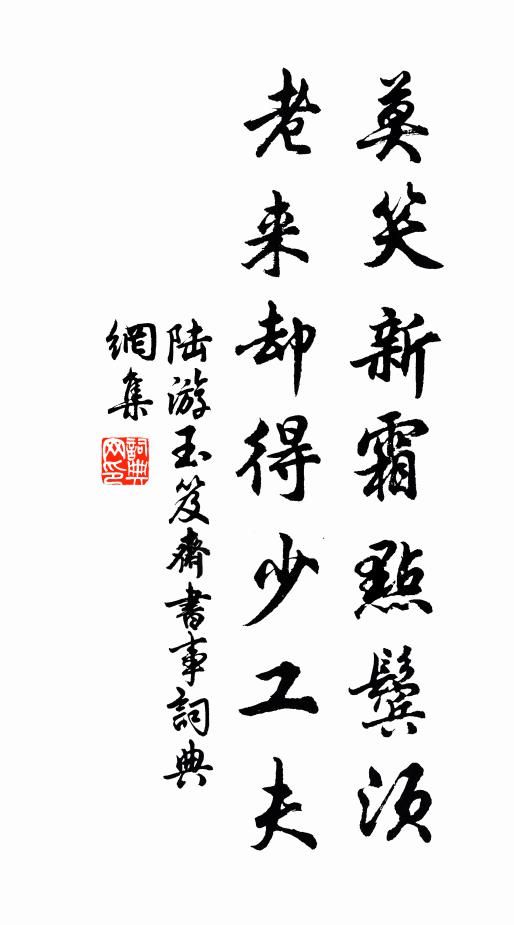 莫笑新霜點鬢須
老来却得少工夫
陆游玉笈齋書事詞典
網集
詞典
网印